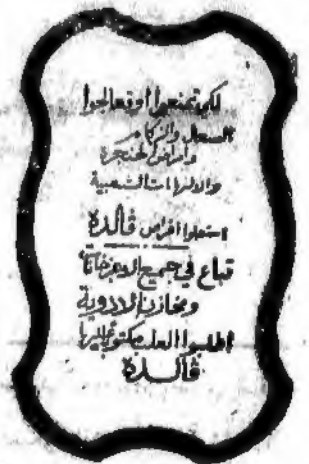 لكي تمنعوا أو تعالجوا
السعال والزكام
وأمراض الحنجرة
والالتهابات الشعبية
استعملوا أقراص ڤالدة
تباع في جميع الاجزخانات
ومخازن الادوية
اطلبوا العلب مكتوب عليها
ڤالدة